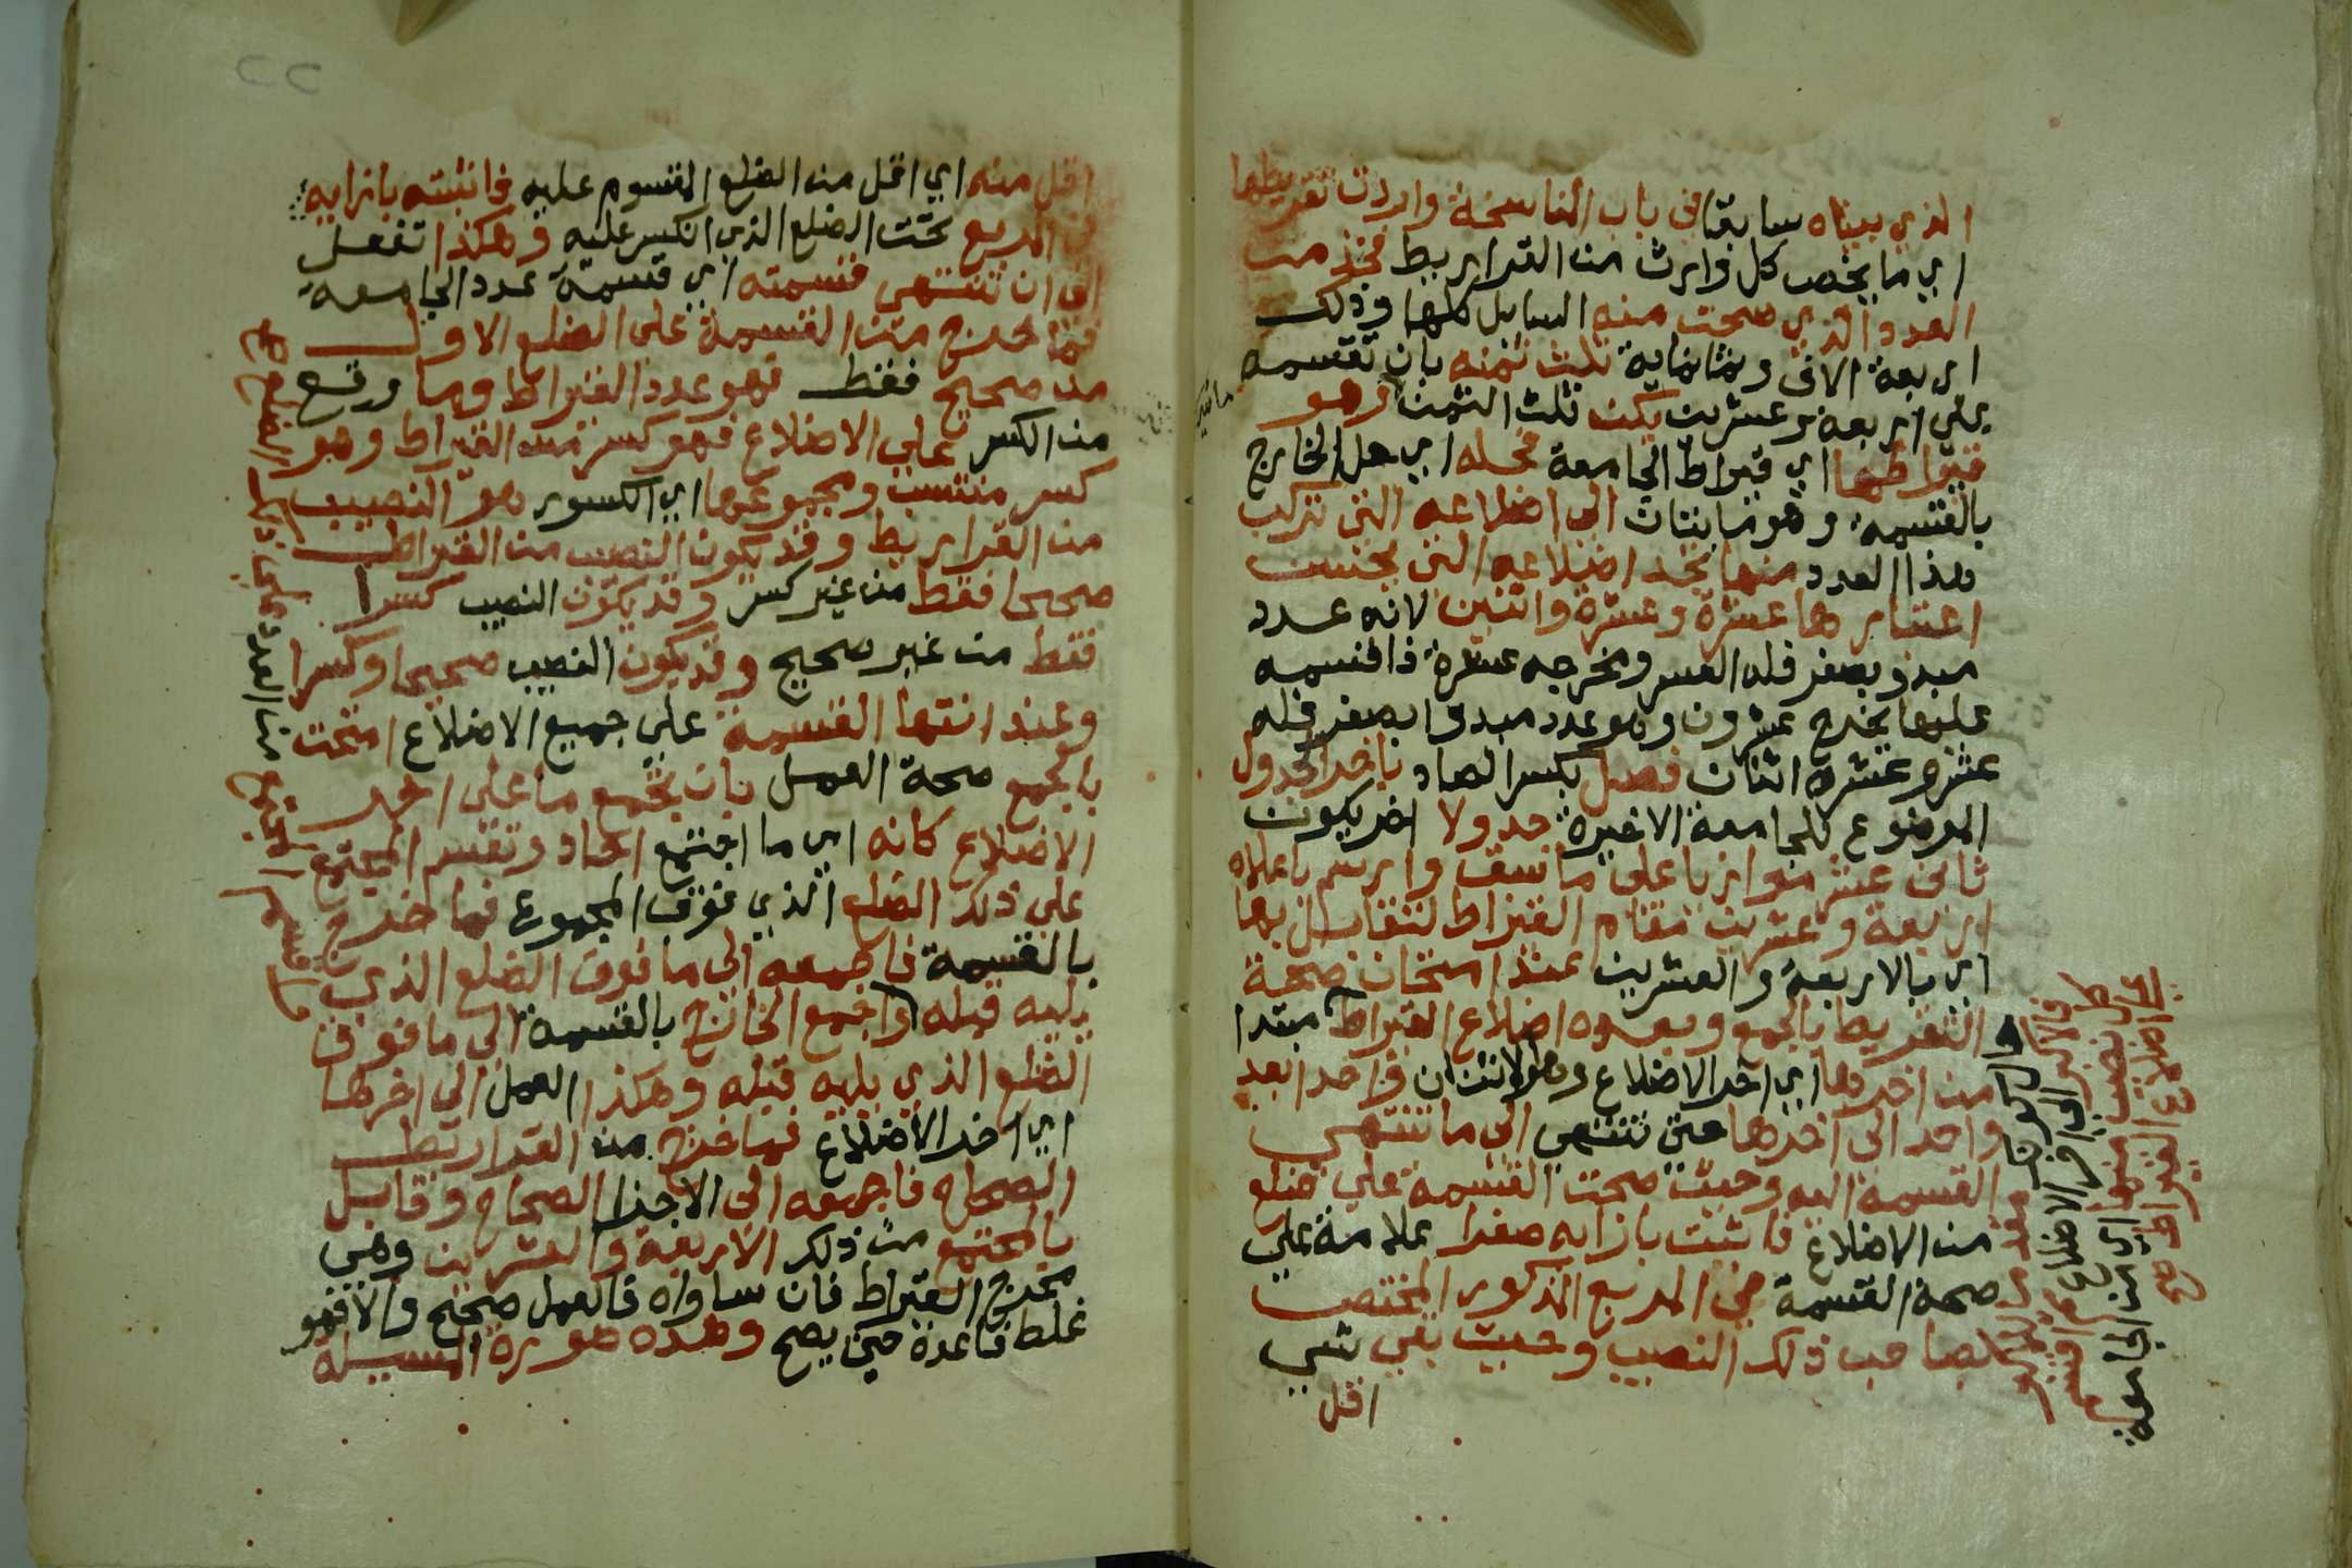 الذي بيناه سابقا في باب المناسخة واردت تقريطها
اي ما يخص كل وارث من القراريط فخذ من
العدد الذي صحت منه المسايل كلها وذلك
اربعة الاف وثمانماية ثلث ثمنه بان تقسمه
علي اربعة وعشرين يكن ثلث الثمن وهو
قيراطها اي قيراط الجامعة فحله اي حل الخارج
بالقسمة وهو مايتان الي اضلاعه التي تركب
هذا العدد منها تجد اضلاعه التي بحسب
اعتبارها عشرة وعشرة واثنين لانه عدد
مبدو بصفر فله العشر ومخرجه عشرة فاقسمه
عليها يخرج عشرون وهو عدد مبدوا بصفر فله
عشر وعشرة اثنان فصل بكسر الصاد باخر الجدول
الموضوع للجامعة الاخيرة جدولا اخر يكون
ثاني عشر موازيا على ما سبق وارسم باعلاه
اربعة وعشرين مقام القيراط لتقابل بها
اي بالاربعة والعشرين عند امتحان صحة
التقريط بالجمع وبعده اضلاع القيراط مبتدا
من اخرها اي اخر الاضلاع وهو الاثنان واحدا بعد
واحد الى اخرها حتى تنتهي الى ما تنتهي
القسمة اليه وحيث صحت القسمة علي ضلع
من الاضلاع فاثبت بازايه صفرا علامة علي
صحة القسمة في المربع المذكور المختص
بصاحب ذلك النصيب وحيث بقي شي
اقل
اقل منه اي اقل من الضلع المقسوم عليه فاثبته بازايه
في المربع تحت الضلع الذي انكسر عليه وهكذا تفعل
الى ان تنتهي قسمته اي قسمة عدد الجامعة
فما خرج من القسمة على الضلع الاول
من صحيح فقط فهو عدد القيراط وما وقع
من الكسر علي الاضلاع فهو كسر من القيراط وهو
كسر منتسب ومجموعها اي الكسور هو النصيب
من القراريط وقد يكون النصيب من القيراط
صحيحا فقط من غير كسر وقد يكون النصيب كسرا
فقط من غير صحيح وقد يكون النصيب صحيحا وكسرا
وعند انتها القسمة علي جميع الاضلاع امتحن
بالجمع صحة العمل بان تجمع ما على اخر
الاضلاع كانه اي ما اجتمع احاد وتقسم المجتمع
علي ذلك الضلع الذي فوق المجموع فما خرج
بالقسمة فاجمعه الى ما فوق الضلع الذي
يليه قبله واجمع الخارج بالقسمة الى ما فوق
الضلع الذي يليه قبله وهكذا العمل الى اخرها
اي اخر الاضلاع فما خرج من القراريط
الصحاح فاجمعه الى الاجزا الصحاح وقابل
بالمجتمع من ذلك الاربعة والعشرين وهي
مخرج القيراط فان ساواه فالعمل صحيح والا فهو
غلط فاعده حتى يصح وهذه صورة المسيلة